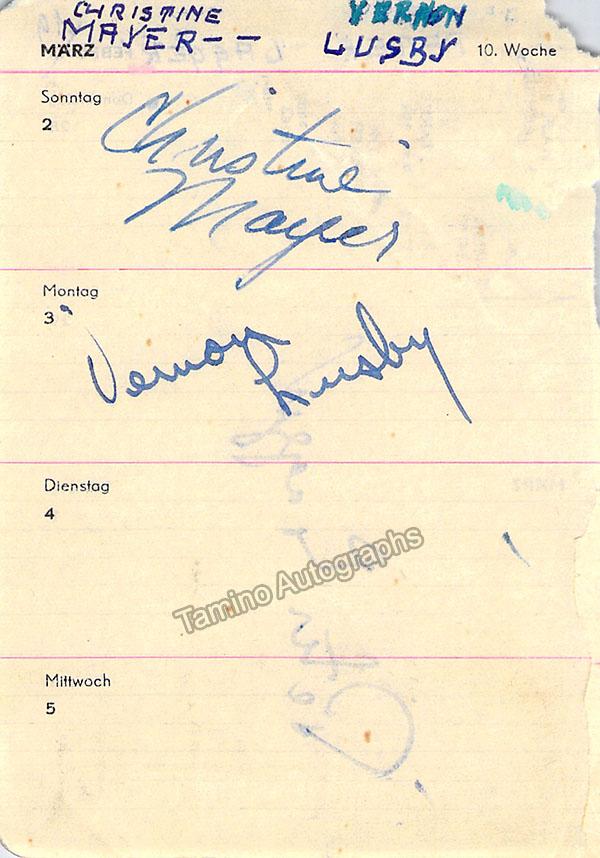 CHRISTINE
MAYER--
VERNON
LUSBY
MÄRZ
10. Woche
Sonntag
2
Christine
Mayer
Montag
3
Vernon
Lusby
Dienstag
4
Tamino Autographs
Mittwoch
5